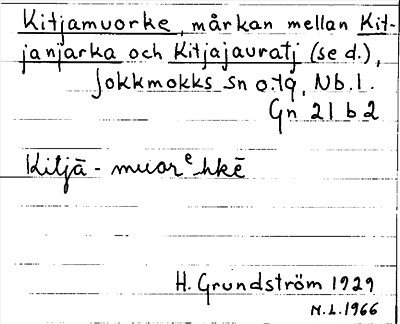 Kitjamuorke, mårkan mellan Kit-
janjarka och Kitjajauratj (se d.),
Jokkmokks sn o. tg, Nb. l.
Gn 21 b 2
Kitjā - muorᵉhkē
H. Grundström 1929
M.L. 1966